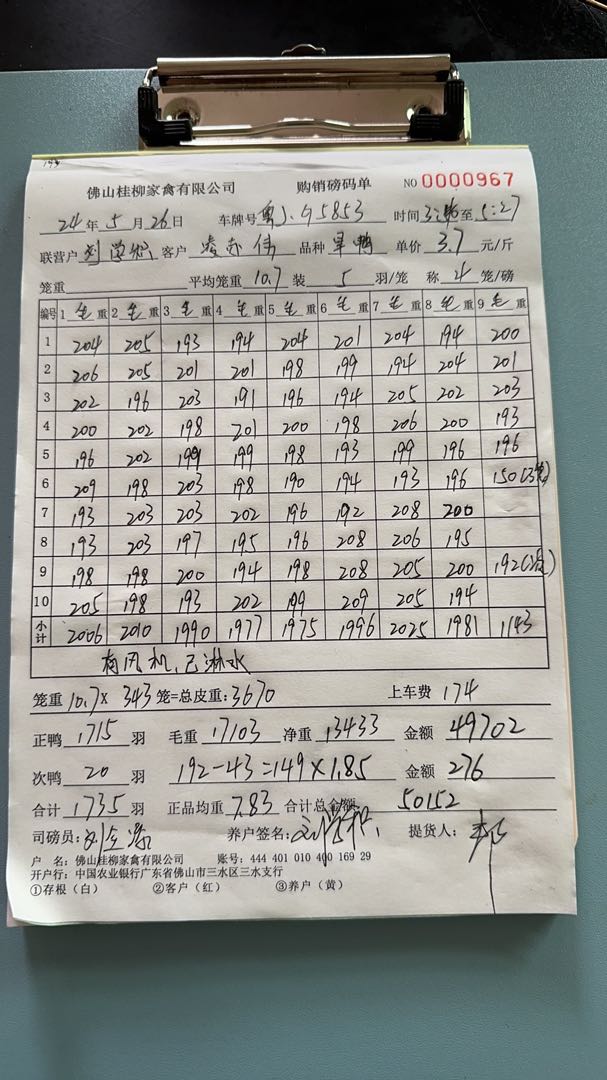 佛山桂柳家禽有限公司 购销磅码单 NO 0000967
24年5月26日 车牌号 粤J·G5853 时间 至5:27
联营户 客户 品种 单价 3.7 元/斤
笼重 平均笼重 10.7 装 5 羽/笼 称 4 笼/磅
编号 1 毛重 2 毛重 3 毛重 4 毛重 5 毛重 6 毛重 7 毛重 8 毛重 9 毛重
1 204 205 193 194 204 201 204 194 200
2 206 205 201 201 198 199 194 204 201
3 202 196 203 191 196 194 205 202 203
4 200 202 198 201 200 198 206 200 193
5 196 202 199 199 198 193 199 196 196
6 209 198 203 198 190 194 193 196 150(3笼)
7 193 203 203 202 196 192 208 200
8 193 203 197 195 196 208 206 195
9 198 198 200 194 198 208 205 200 192
10 205 198 193 202 199 209 205 194
小计 2006 2010 1990 1977 1975 1996 2025 1981 1143
有风机,已淋水
笼重 10.7× 343 笼=总皮重:3670 上车费 174
正鸭 1715 羽 毛重 17103 净重 13433 金额 49702
次鸭 20 羽 192-43=149×1.85 金额 276
合计 1735 羽 正品均重 7.83 合计总金额 50152
司磅员: 养户签名: 提货人:
户 名:佛山桂柳家禽有限公司 账号:444 401 010 400 169 29
开户行:中国农业银行广东省佛山市三水区三水支行
①存根(白) ②客户(红) ③养户(黄)